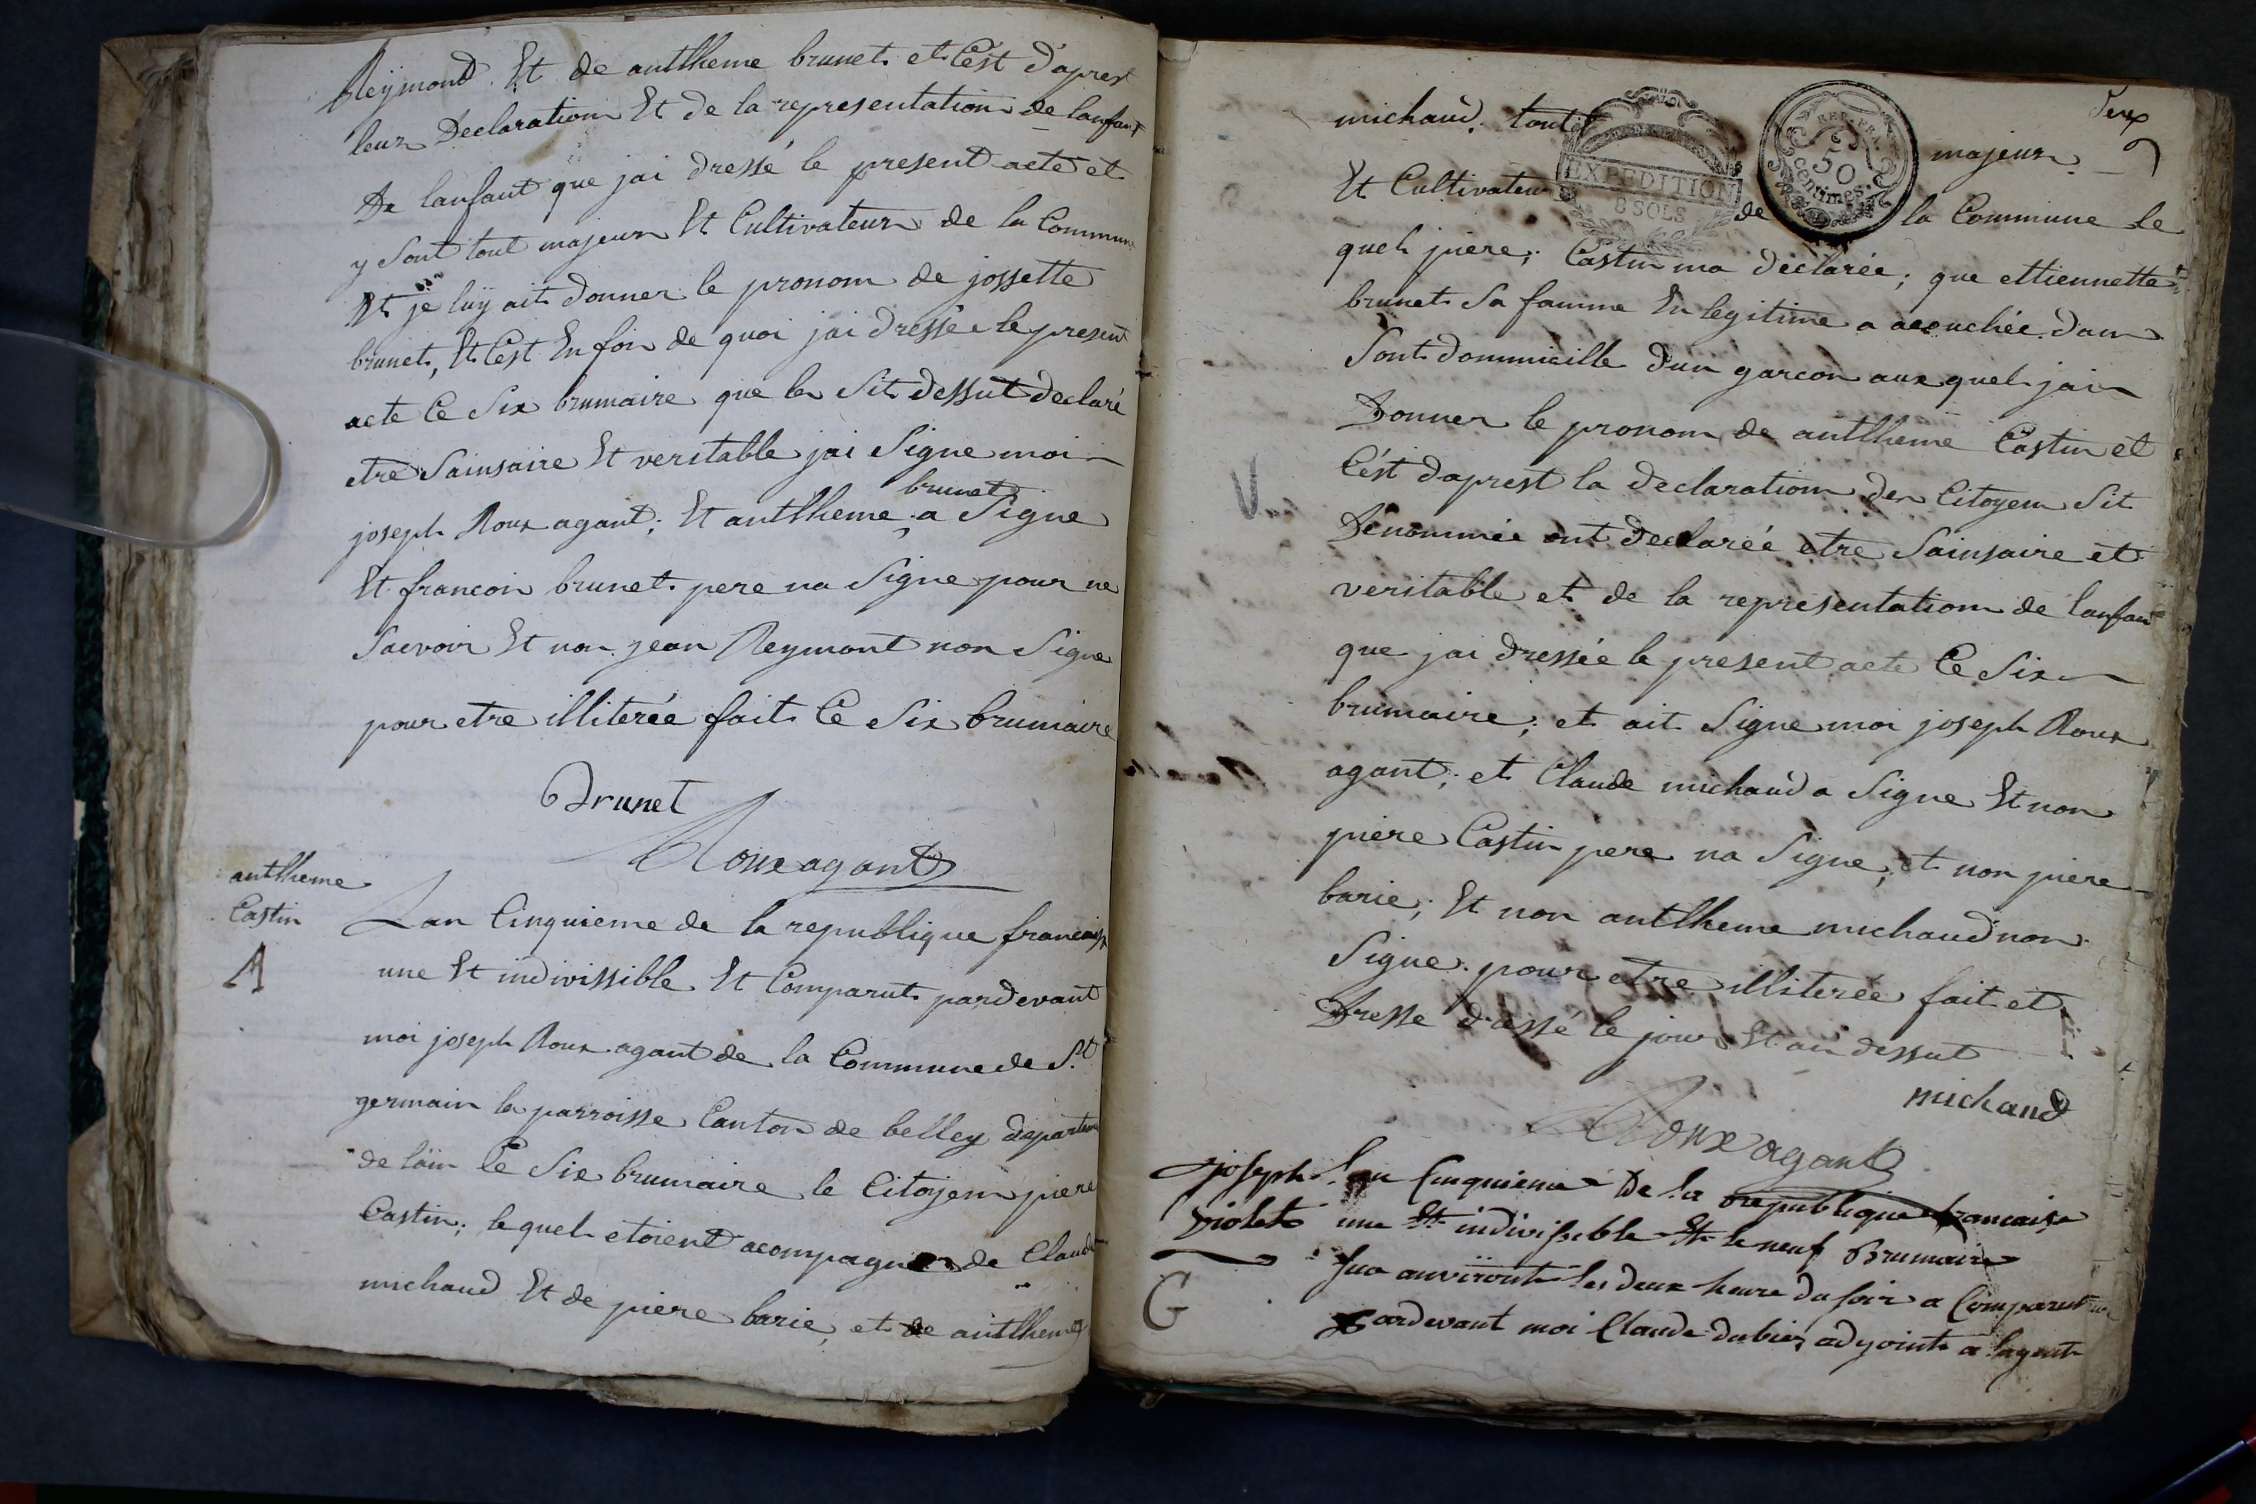 Reÿmond Et de anthheme brunet et C'ést d'aprest
leur Declaration Et de la representation de lanfant
De lanfant que jai dressé le present acte et
y Sont tout majeur Et Cultivateur de la Commune
Et je luÿ ait donner le pronom de jossette
brunet, Et C'est En foi de quoi jai dressée le present
acte Ce Six brumaire que les Sit dessut declaré
etre Sainsaire Et veritable jai Signe moi
brunet
joseph Roux agant; Et anthheme a Signe
Et francois brunet pere na Signe pour ne
Sacvoir Et non jean Reymont non Signe
pour etre illiterée fait Ce Six brumaire
Brunet
Roux agant
anthheme
Castin
A
Lan Cinquieme de la republique francaise
une Et indivissible Et Comparut pardevant
moi joseph Roux agant de la Commune de St
germain les parroisse Canton de belley departem
de lain Ce Six brumaire le Citoyen piere
Castin; le quel etoient acompagner de Claude
michaud Et de piere barie, et de anthheme
Deux
michaud; tout majeur
EXPEDITION
8 SOLS
REP. FRA.
50
centimes.
Et Cultivateur de la Commune le
quel piere; Castin ma déclarée; que ettiennette
brunet Sa famme En legitime a acouchée dans
Sont dommicille d'un garcon aux quel jai
Donner le pronom de anthheme Castin et
C'ést d'aprest la declaration des Citoyen Sit
Dénommée ont declarée etre Sainsaire et
veritable et de la representation de lanfant
que jai dressée le present acte Ce Six
brumaire; et ait Signe moi joseph Roux
agant; et Claude michaud a Signe Et non
piere Castin pere na Signe; et non piere
barie; Et non anthheme michaud non
Signe pour etre illiterée fait et
Dresse drassé le jour Et an dessut
michaud
Roux agant
joseph
violet
G
Lan Cinquieme De la republique francaise
une Et indivisible Et le neuf Brumaire
Sua anviront les deux heure du soir a Comparut
pardevant moi Claude dubies adjoint a lagent